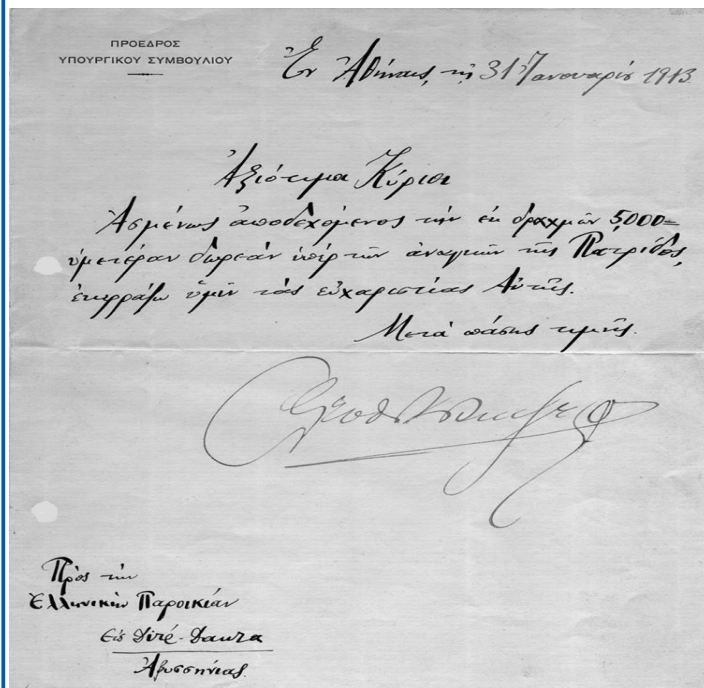 ΠΡΟΕΔΡΟΣ
ΥΠΟΥΡΓΙΚΟΥ ΣΥΜΒΟΥΛΙΟΥ
Ἐν Ἀθήναις, τῇ 31 Ἰανουαρίου 1913.
Ἀξιότιμοι Κύριοι
Ἀσμένως ἀποδεχόμενος τὴν ἐκ δραχμῶν 5,000=
ὑμετέραν δωρεὰν ὑπὲρ τῶν ἀναγκῶν τῆς Πατρίδος,
ἐκφράζω ὑμῖν τὰς εὐχαριστίας Αὐτῆς.
Μετὰ πάσης τιμῆς.
Πρὸς τὴν
Ἑλληνικὴν Παροικίαν
Εἰς Διρέ-Δαουα
Ἀβυσσηνίας.